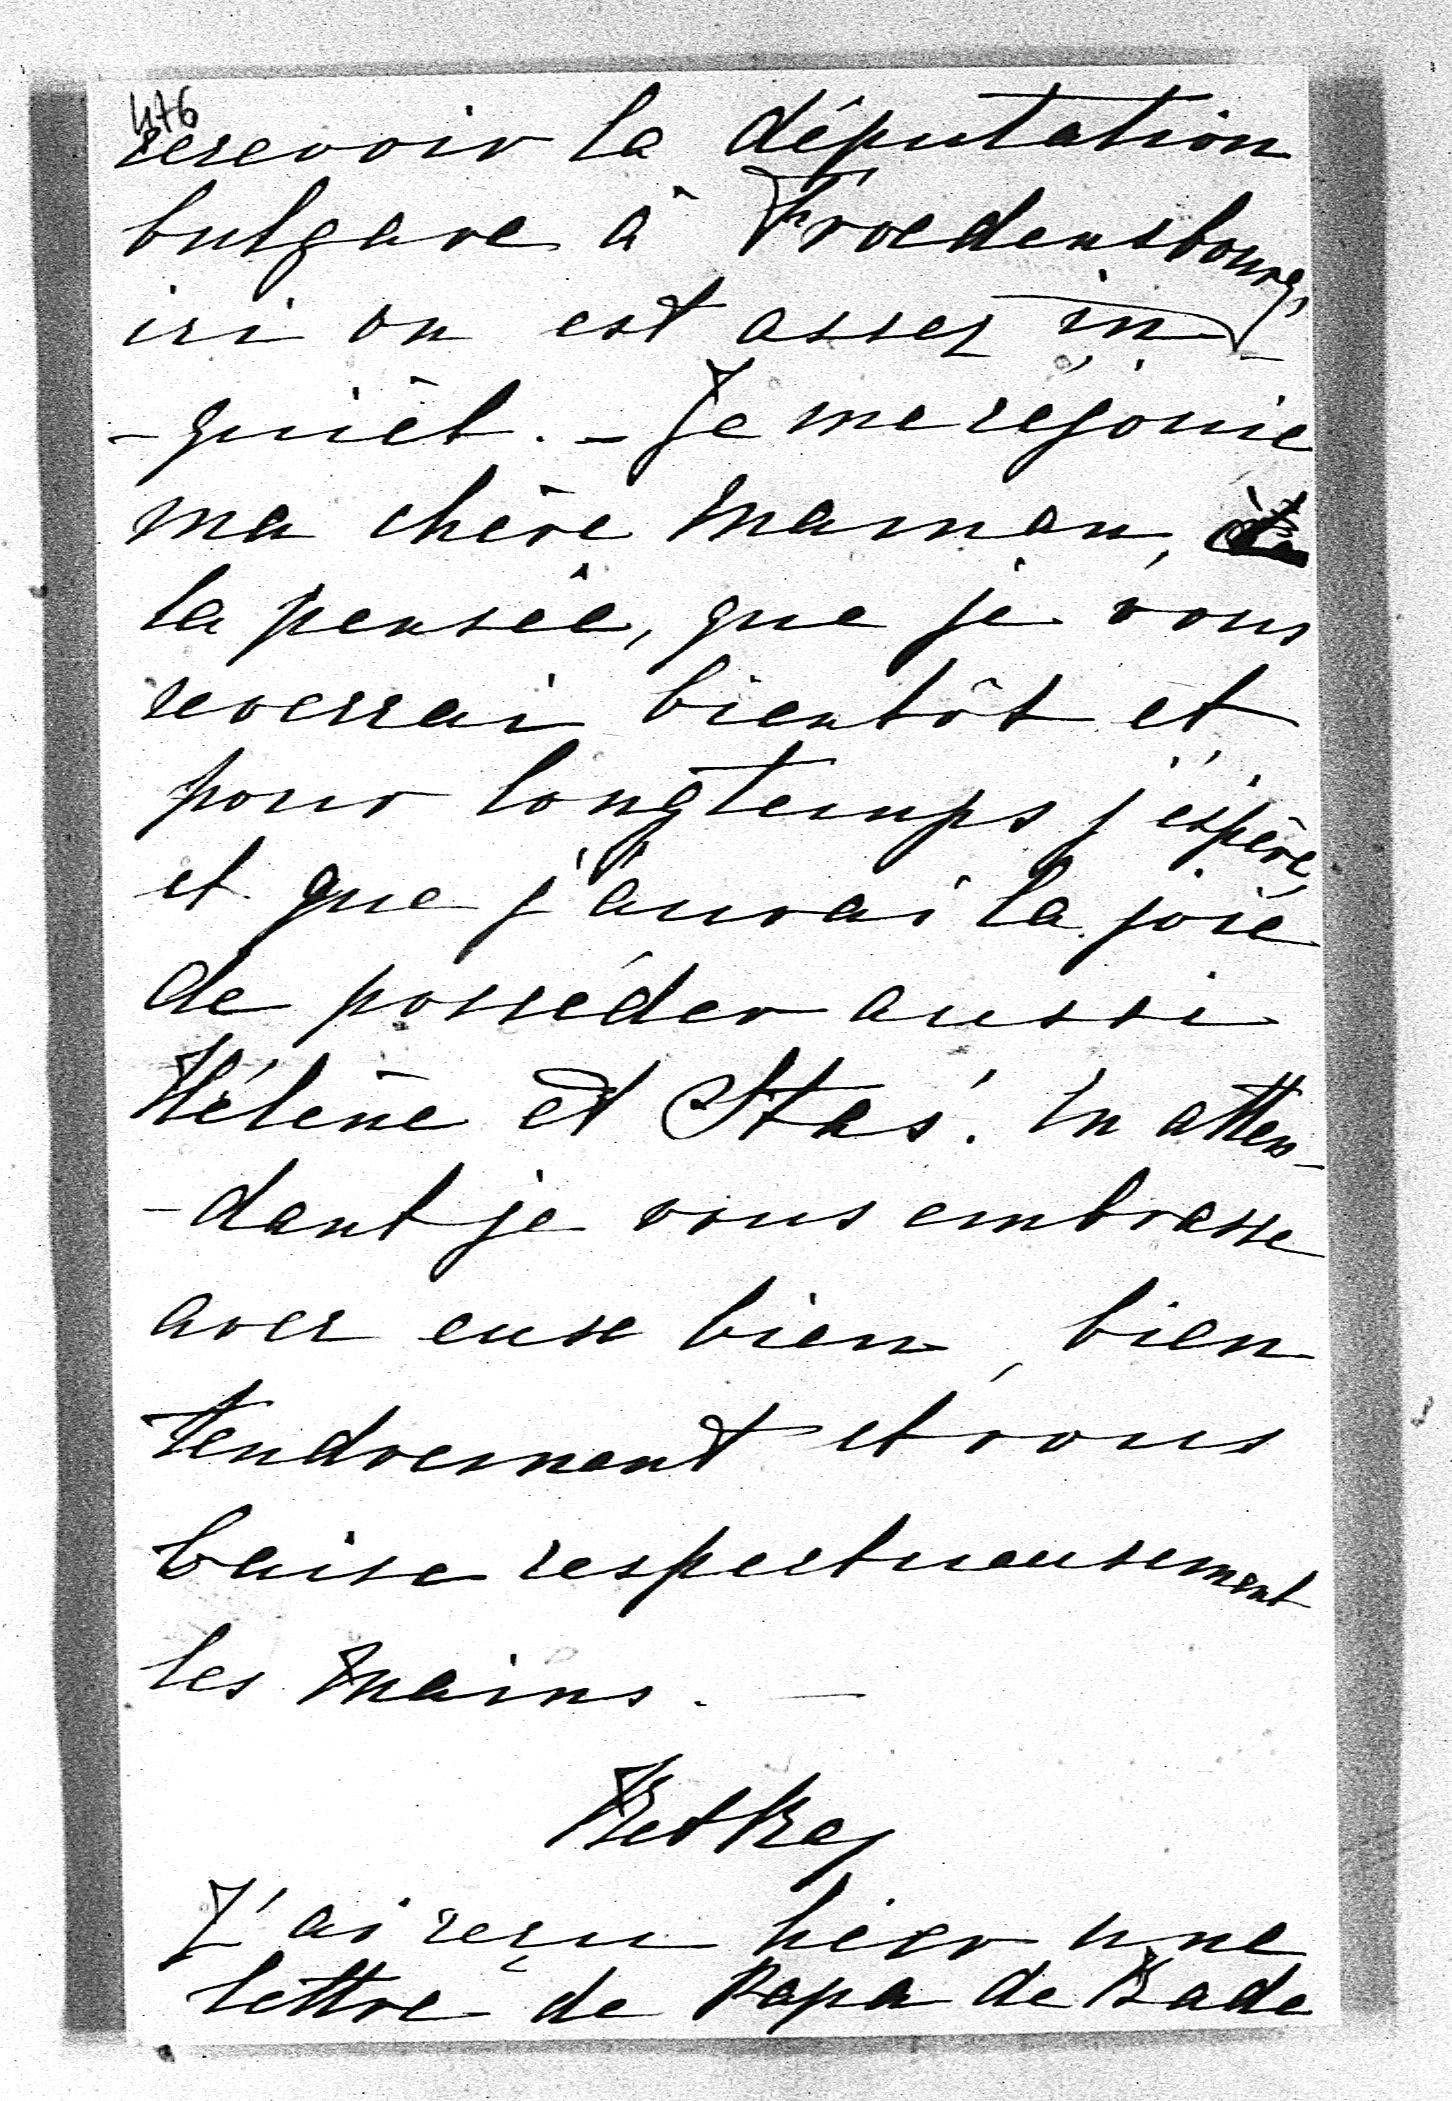 476
recevoir la députation
bulgare à Froedensbourg,
ici on est assez in-
-quièt. - Je me rejouie
ma chère Maman,
la pensée, que je vous
reverrai bientôt et
pour longtemps j'éspère,
et que j'aurai la joie
de posséder aussi
Hélène et Stas'. En atten-
-dant je vous embrasse
avec eux bien, bien
tendrement et vous
baise respectueusement
les mains. —
J'ai reçu hier une
lettre de Papa de Bade